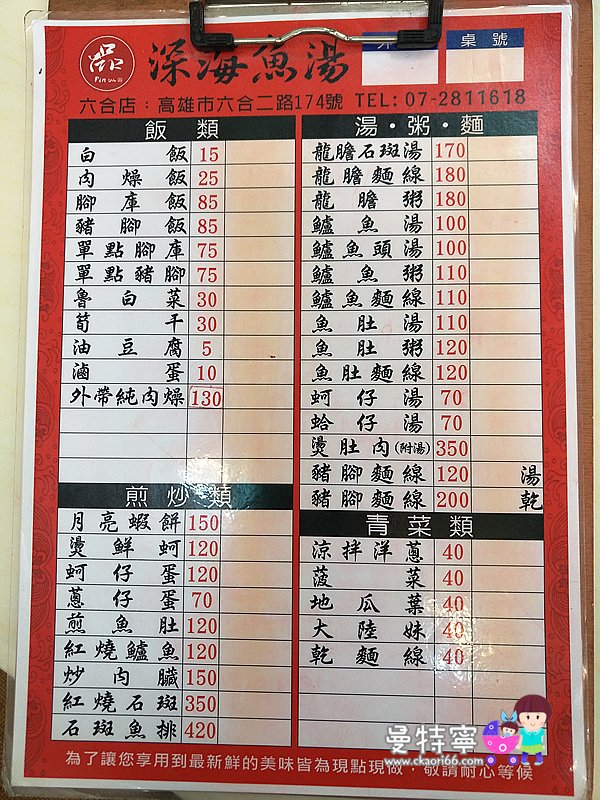 品
Pin
深海魚湯
桌號
六合店：高雄市六合二路174號 TEL: 07-2811618
飯類
白飯 15
肉燥飯 25
腳庫飯 85
豬腳飯 85
單點腳庫 75
單點豬腳 75
魯白菜 30
筍干 30
油豆腐 5
滷蛋 10
外帶純肉燥 130
煎炒類
月亮蝦餅 150
燙鮮蚵 120
蚵仔蛋 120
蔥仔蛋 70
煎魚肚 120
紅燒鱸魚 120
炒肉臟 150
紅燒石斑 350
石斑魚排 420
湯・粥・麵
龍膽石斑湯 170
龍膽麵線 180
龍膽粥 180
鱸魚湯 100
鱸魚頭湯 100
鱸魚粥 110
鱸魚麵線 110
魚肚湯 110
魚肚粥 120
魚肚麵線 120
蚵仔湯 70
蛤仔湯 70
燙肚肉(附湯) 350
豬腳麵線 120 湯
豬腳麵線 200 乾
青菜類
涼拌洋蔥 40
菠菜 40
地瓜葉 40
大陸妹 40
乾麵線 40
為了讓您享用到最新鮮的美味皆為現點現做，敬請耐心等候
曼特寧
www.ckaori66.com